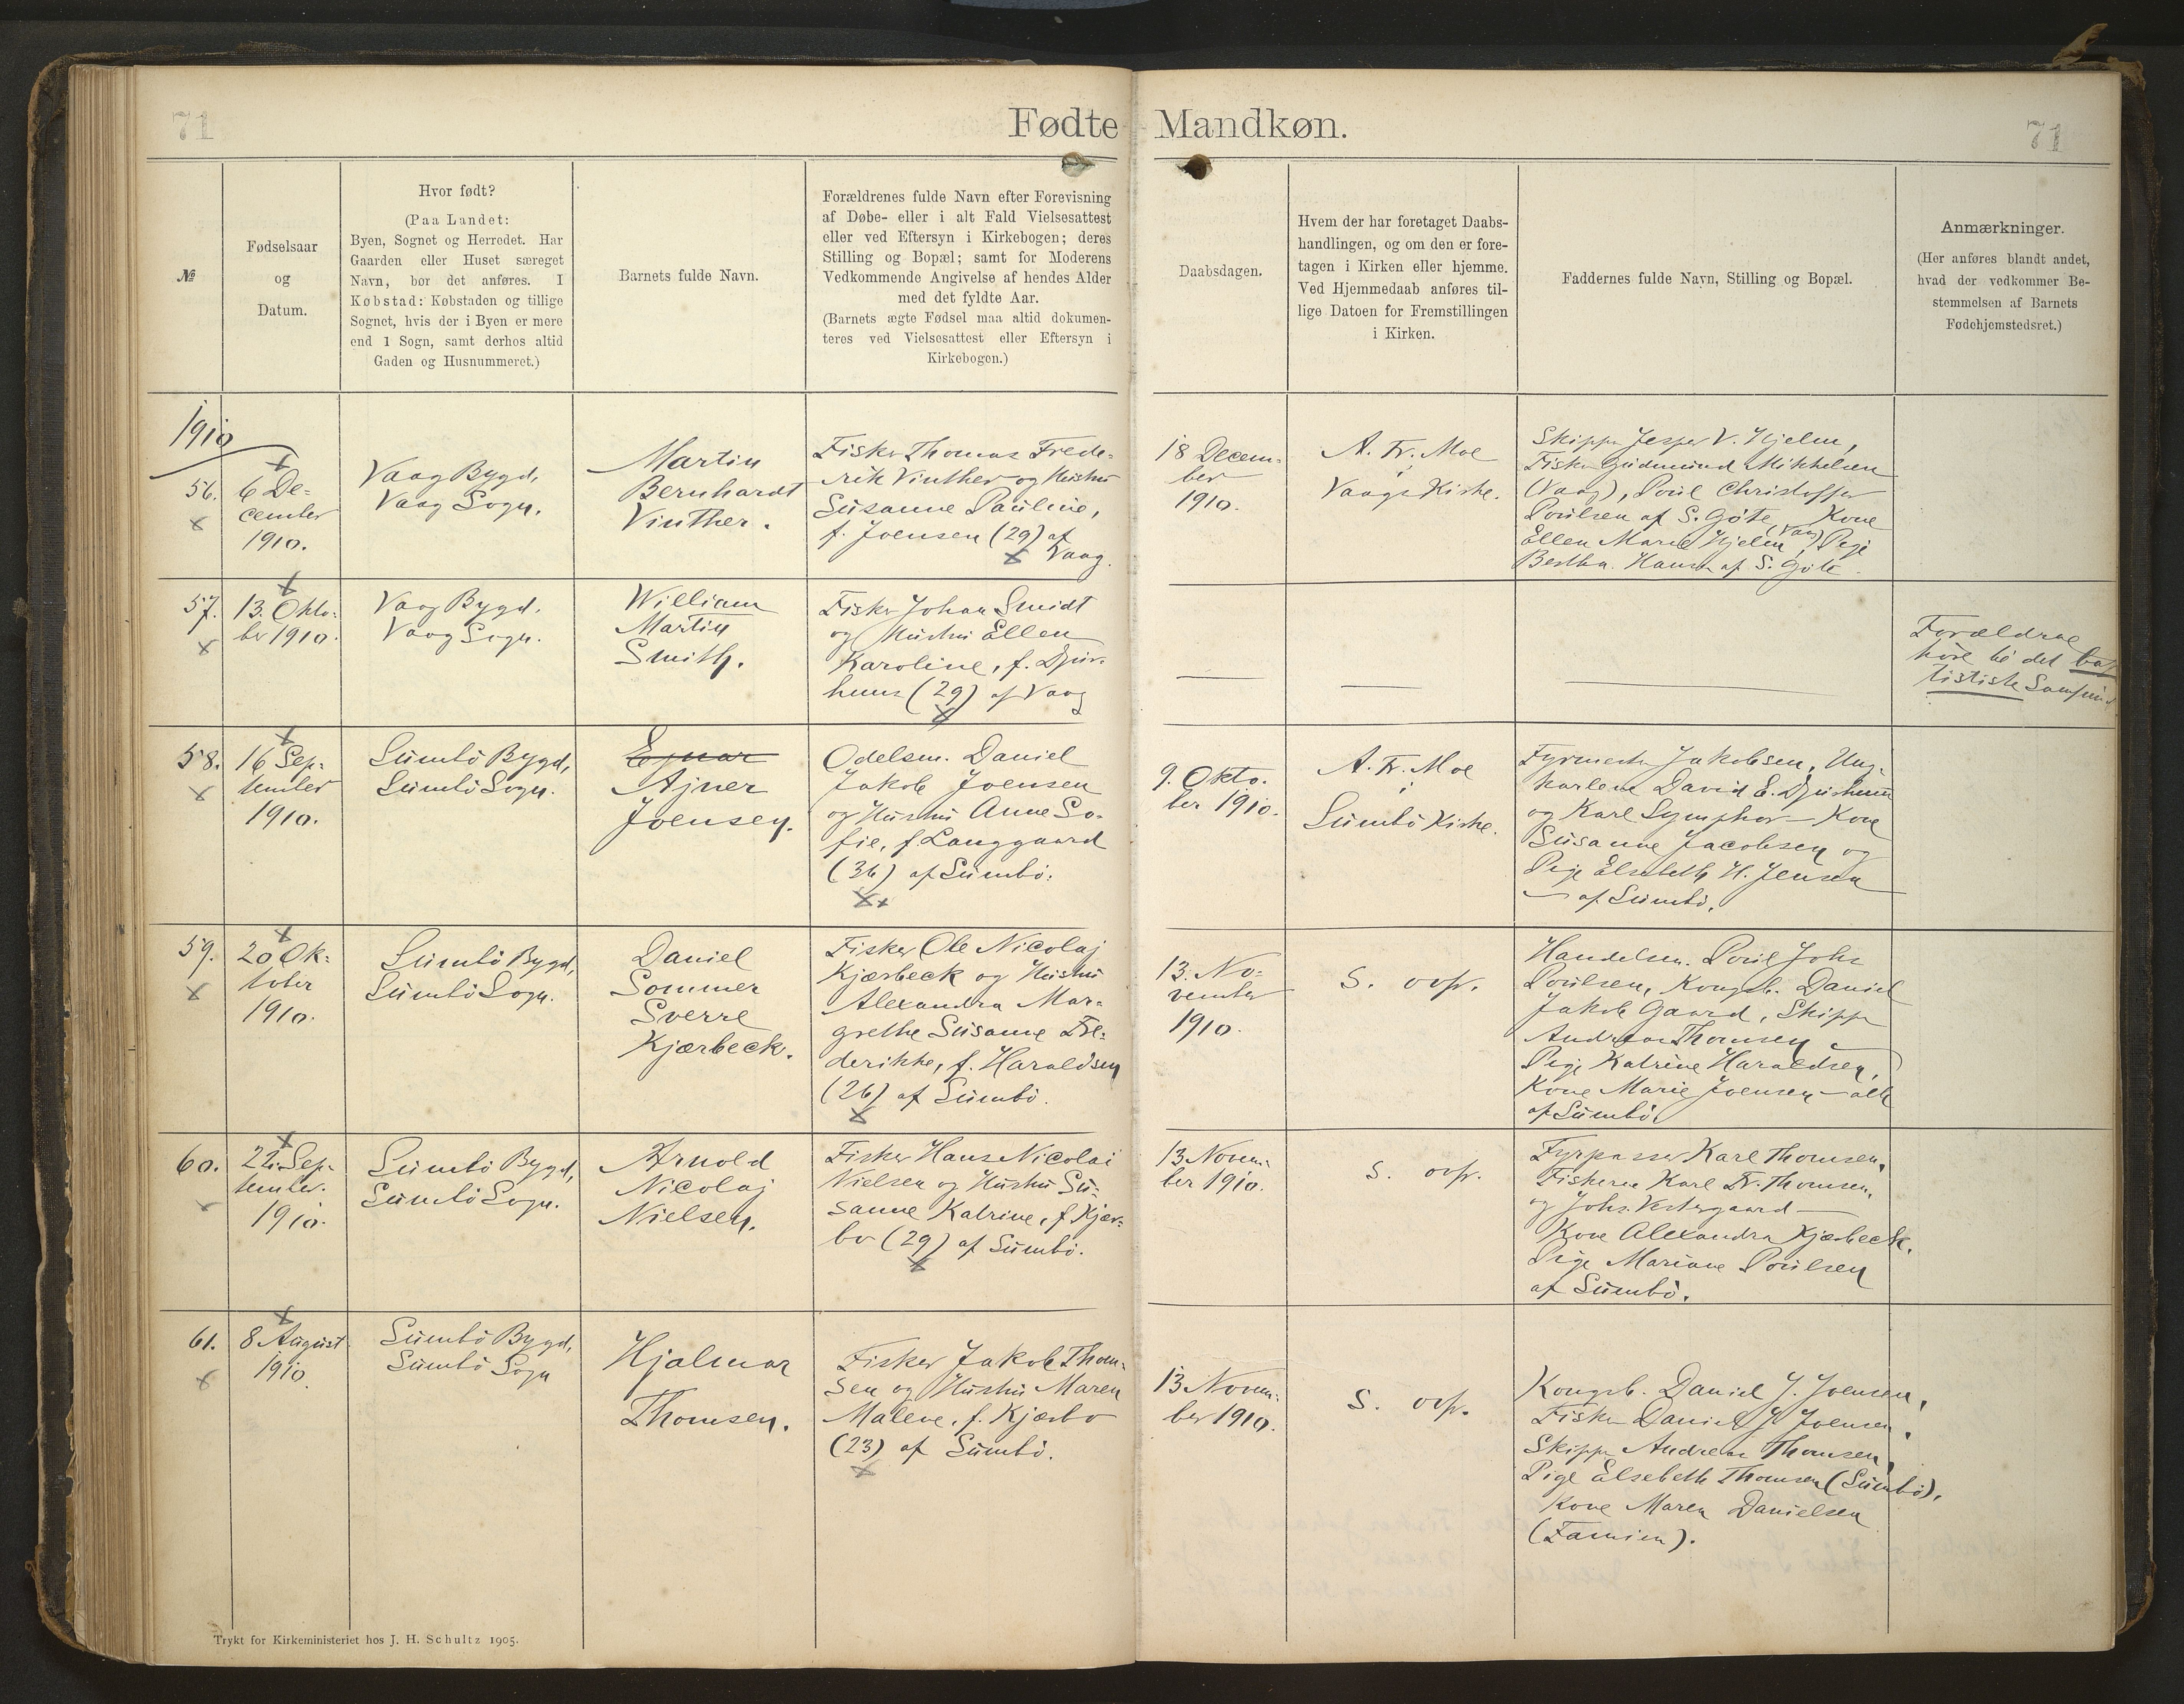 71
Fødte Mandkøn.
71
№
Fødselsaar
og
Datum.
Hvor født?
(Paa Landet:
Byen, Sognet og Herredet. Har
Gaarden eller Huset særeget
Navn, bør det anføres. I
Købstad: Købstaden og tillige
Sognet, hvis der i Byen er mere
end 1 Sogn, samt derhos altid
Gaden og Husnummeret.)
Barnets fulde Navn.
Forældrenes fulde Navn efter Forevisning
af Døbe- eller i alt Fald Vielsesattest
eller ved Eftersyn i Kirkebogen; deres
Stilling og Bopæl; samt for Moderens
Vedkommende Angivelse af hendes Alder
med det fyldte Aar.
(Barnets ægte Fødsel maa altid dokumen-
teres ved Vielsesattest eller Eftersyn i
Kirkebogen.)
Daabsdagen.
Hvem der har foretaget Daabs-
handlingen, og om den er fore-
tagen i Kirken eller hjemme.
Ved Hjemmedaab anføres til-
lige Datoen for Fremstillingen
i Kirken.
Faddernes fulde Navn, Stilling og Bopæl.
Anmærkninger.
(Her anføres blandt andet,
hvad der vedkommer Be-
stemmelsen af Barnets
Fødehjemstedsret.)
1910
56.
6 De-
cember
1910.
Vaag Bygd,
Vaag Sogn.
Martin
Bernhardt
Vinther.
Fisker Thomas Frede-
rik Vinther og Hustru
Susanne Pauline,
f. Joensen (29) af
Vaag.
18 Decem-
ber
1910.
A. Fr. Moe
i
Vaags Kirke.
Skipper Jesper V. Hjelm,
Fisker Gudmund Mikkelsen
(Vaag), Poul Christoffer
Poulsen af S. Göte, Kone
Ellen Marie Hjelm (Vaag), Pige
Bertha Hansen af S. Göte.
57.
13. Okto-
ber 1910.
Vaag Bygd,
Vaag Sogn.
William
Martin
Smith.
Fisker Johan Smidt
og Hustru Ellen
Karoline, f. Djur-
huus (29) af Vaag
Forældrene
höre til det bap
tistiske Samfund
58.
16 Sep-
tember
1910.
Sumbö Bygd,
Sumbö Sogn.
Ejnar
Ajner
Joensen.
Odelsm. Daniel
Jakob Joensen
og Hustru Anne So-
fie, f. Langgaard
(36) af Sumbö.
9. Okto-
ber 1910.
A. Fr. Moe
i
Sumbö Kirke.
Fyrmester Jakobsen, Ung-
karlene David E. Djurhuus
og Karl Symphor — Kone
Susanne Jacobsen og
Pige Elsebeth H. Jensen
— af Sumbö.
59.
20 Ok-
tober
1910.
Sumbö Bygd,
Sumbö Sogn.
Daniel
Sommer
Sverre
Kjærbeck.
Fisker Ole Nicolaj
Kjærbeck og Hustru
Alexandra Mar-
grethe Susanne Fre-
derikke, f. Haraldsen
(26) af Sumbö.
13. No-
vember
1910.
S. ovf.
Handelsm. Poul Johs
Poulsen, Kongsb. Daniel
Jakob Gaard, Skipper
Andreas Thomsen —
Pige Katrine Haraldsen,
Kone Marie Joensen — alle
af Sumbö.
60.
22. Sep-
tember.
1910.
Sumbö Bygd,
Sumbö Sogn.
Arnold
Nicolaj
Nielsen.
Fisker Hans Nicolai
Nielsen og Hustru Su-
sanne Katrine, f. Kjær-
bo (29) af Sumbö.
13 Novem-
ber 1910.
S. ovf.
Fyrpasser Karl Thomsen,
Fiskerne Karl Fr. Thomsen,
og Johs. Vestergaard —
Kone Alexandra Kjærbeck.
Pige Mariane Poulsen
af Sumbö.
61.
8 August
1910
Sumbö Bygd,
Sumbö Sogn
Hjalmar
Thomsen.
Fisker Jakob Thom-
sen og Hustru Maren
Malene, f. Kjærbo
(23) af Sumbö.
13 Novem-
ber 1910.
S. ovf.
Kongsb. Daniel J. Joensen,
Fisker Daniel J. Joensen,
Skipper Andreas Thomsen,
Pige Elsebeth Thomsen (Sumbö),
Kone Maren Danielsen
(Famien).
Trykt for Kirkeministeriet hos J. H. Schultz 1905.